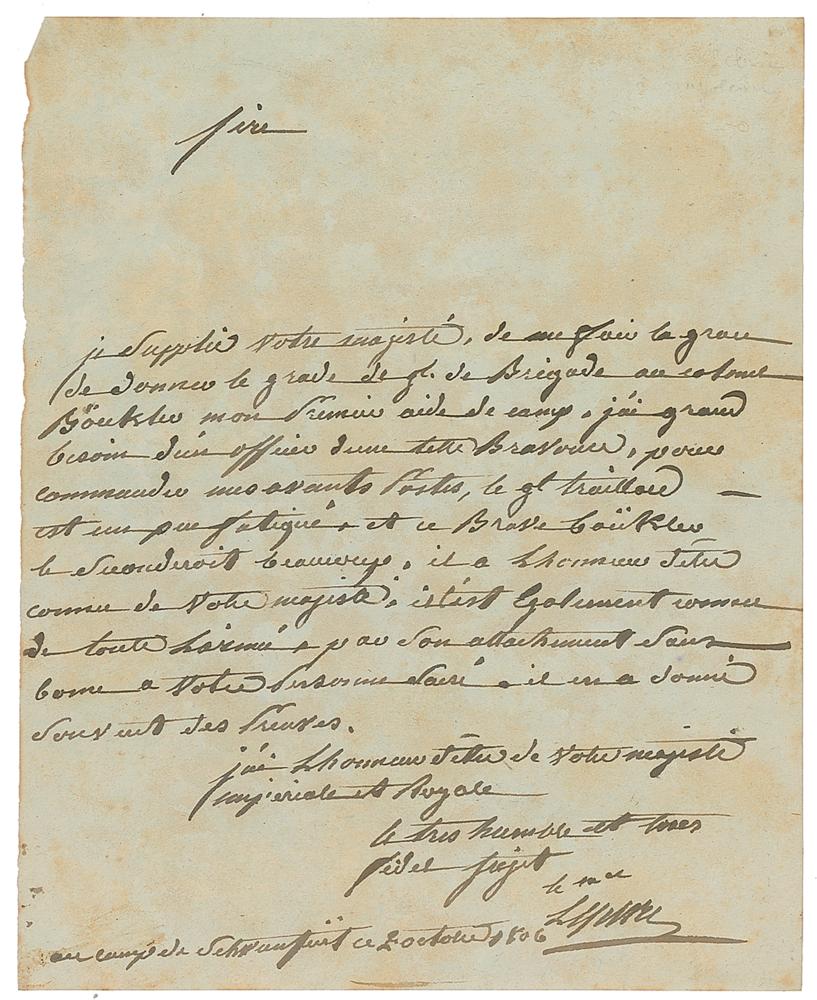 Sire
je Supplie Votre majesté, de me faire la grace
de donner le grade de gl. de Brigade au colonel
Böukler mon Premier aide de camp, jái grand
besoin d'un officier dune telle Bravoure, pour
commander mes avants Postes, le gl trailland
est un peu fatigué, et ce Brave boükler
le Seconderoit beaucoup, il a Lhonneur d'être
connu de Votre majesté, il est Egalement connu
de toute Larmé, par Son attachement Sans
borne a Votre Personne Sacré, il en a donné
Souvent des Preuves.
jái Lhonneur d'être de Votre majesté
impériale et Royale
le tres humble et tres
fidel Sujet
le mal
Lefebvre
au camp de Schvanfürt ce 2 octobre 1806